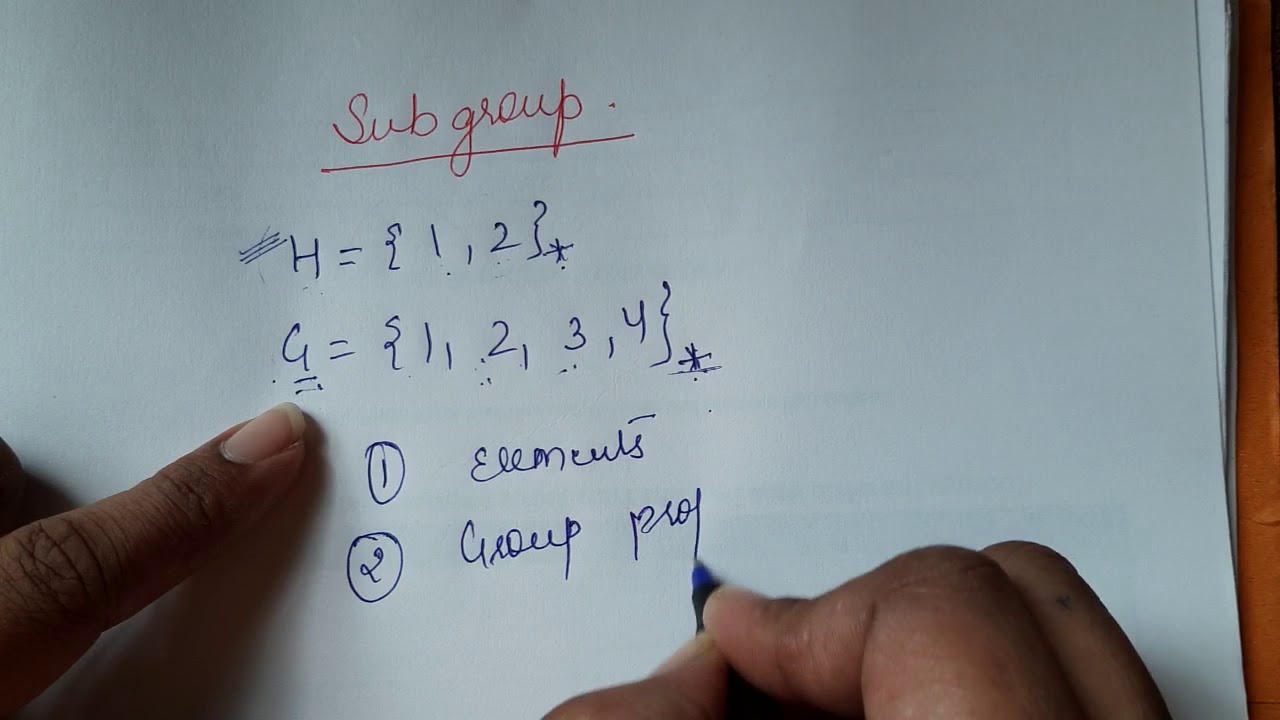 Subgroup.
H = { 1, 2 }*
G = { 1, 2, 3, 4 }*
① Elements
② Group prop